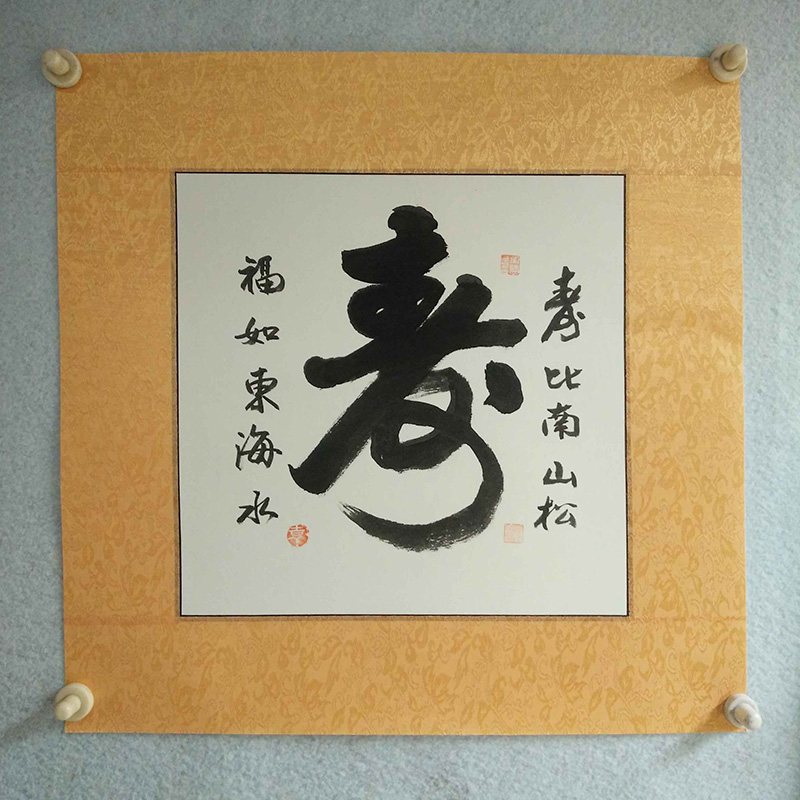 寿
寿比南山松
福如東海水